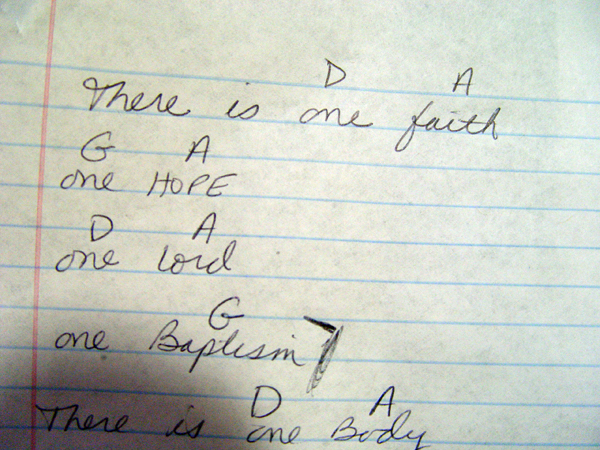 D A
There is one faith
G A
one HOPE
D A
one Lord
G
one Baptism
D A
There is one Body